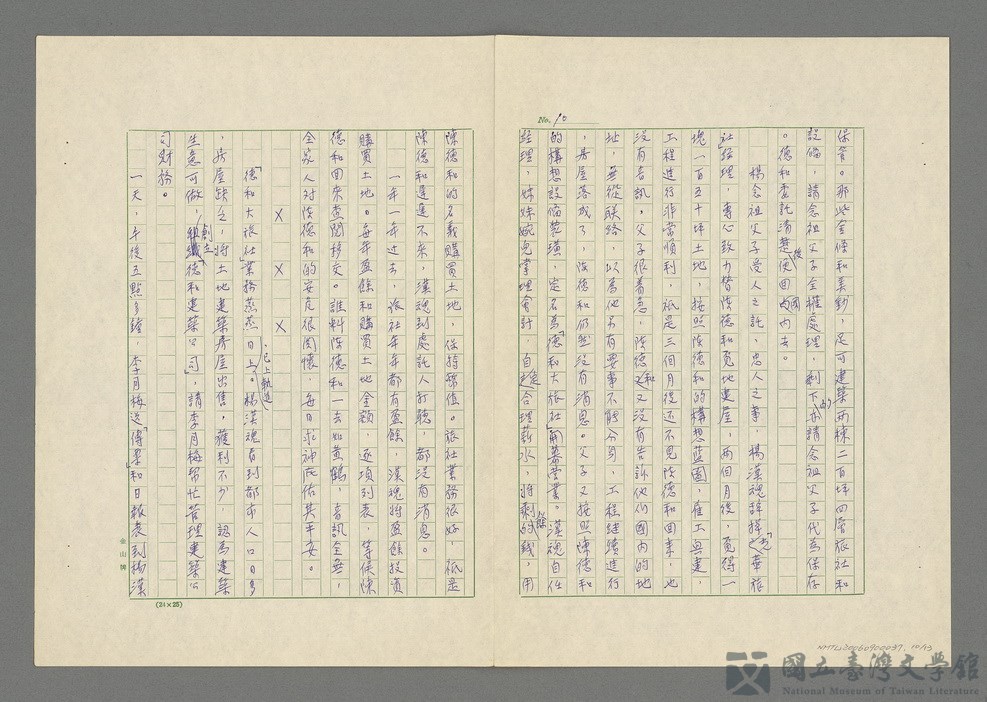 No. 10
保管。那些金條和美鈔,足可建築兩棟二百坪四層旅社和
設備,請念祖父子全權處理,剩下的亦請念祖父子代為保存
。德和委託清楚後便回國內去。
楊念祖父子受人之託,忠人之事,楊漢魂辭掉「志華旅
社」經理,專心致力替陳德和覓地建屋,兩個月後,覓得一
塊一百五十坪土地,按照陳德和的構想藍圖,雇工興建,
工程進行非常順利,祇是三個月後還不見陳德和回來,也
沒有音訊,父子很着急,陳德和又沒有告訴他們國內的地
址,無從聯絡,以為他另有要事不能分身,工程繼續進行
,房屋落成了,陳德和仍然沒有消息。父子又按照陳德和
的構想設備裝璜,定名為「德和大旅社」開幕營業。漢魂自任
經理,妹妹婉兒掌理會計,自定合理薪水,將剩餘的錢,用
陳德和的名義購買土地,保持幣值。旅社業務很好,祇是
陳德和遲遲不來,漢魂到處託人打聽,都沒有消息。
一年一年過去,旅社年年都有盈餘,漢魂將盈餘投資
購買土地。每年盈餘和購買土地金額,逐項列表,等候陳
德和回來查閱移交。誰料陳德和一去如黃鶴,音訊全無,
全家人對陳德和的安危很關懷,每日求神庇佑其平安。
X X X
「德和大旅社」業務蒸蒸日上,已上軌道。楊漢魂看到都市人口日多
,房屋缺乏,將土地建築房屋出售,獲利不少,認為建築
生意可做,創立「德和建築公司」,請李月梅幫忙管理建築公
司財務。
一天,午後五點多鐘,李月梅送傳票和日報表到楊漢
金山牌
(24×25)
NMTL20060900037, 10/13
國立臺灣文學館
National Museum of Taiwan Literature